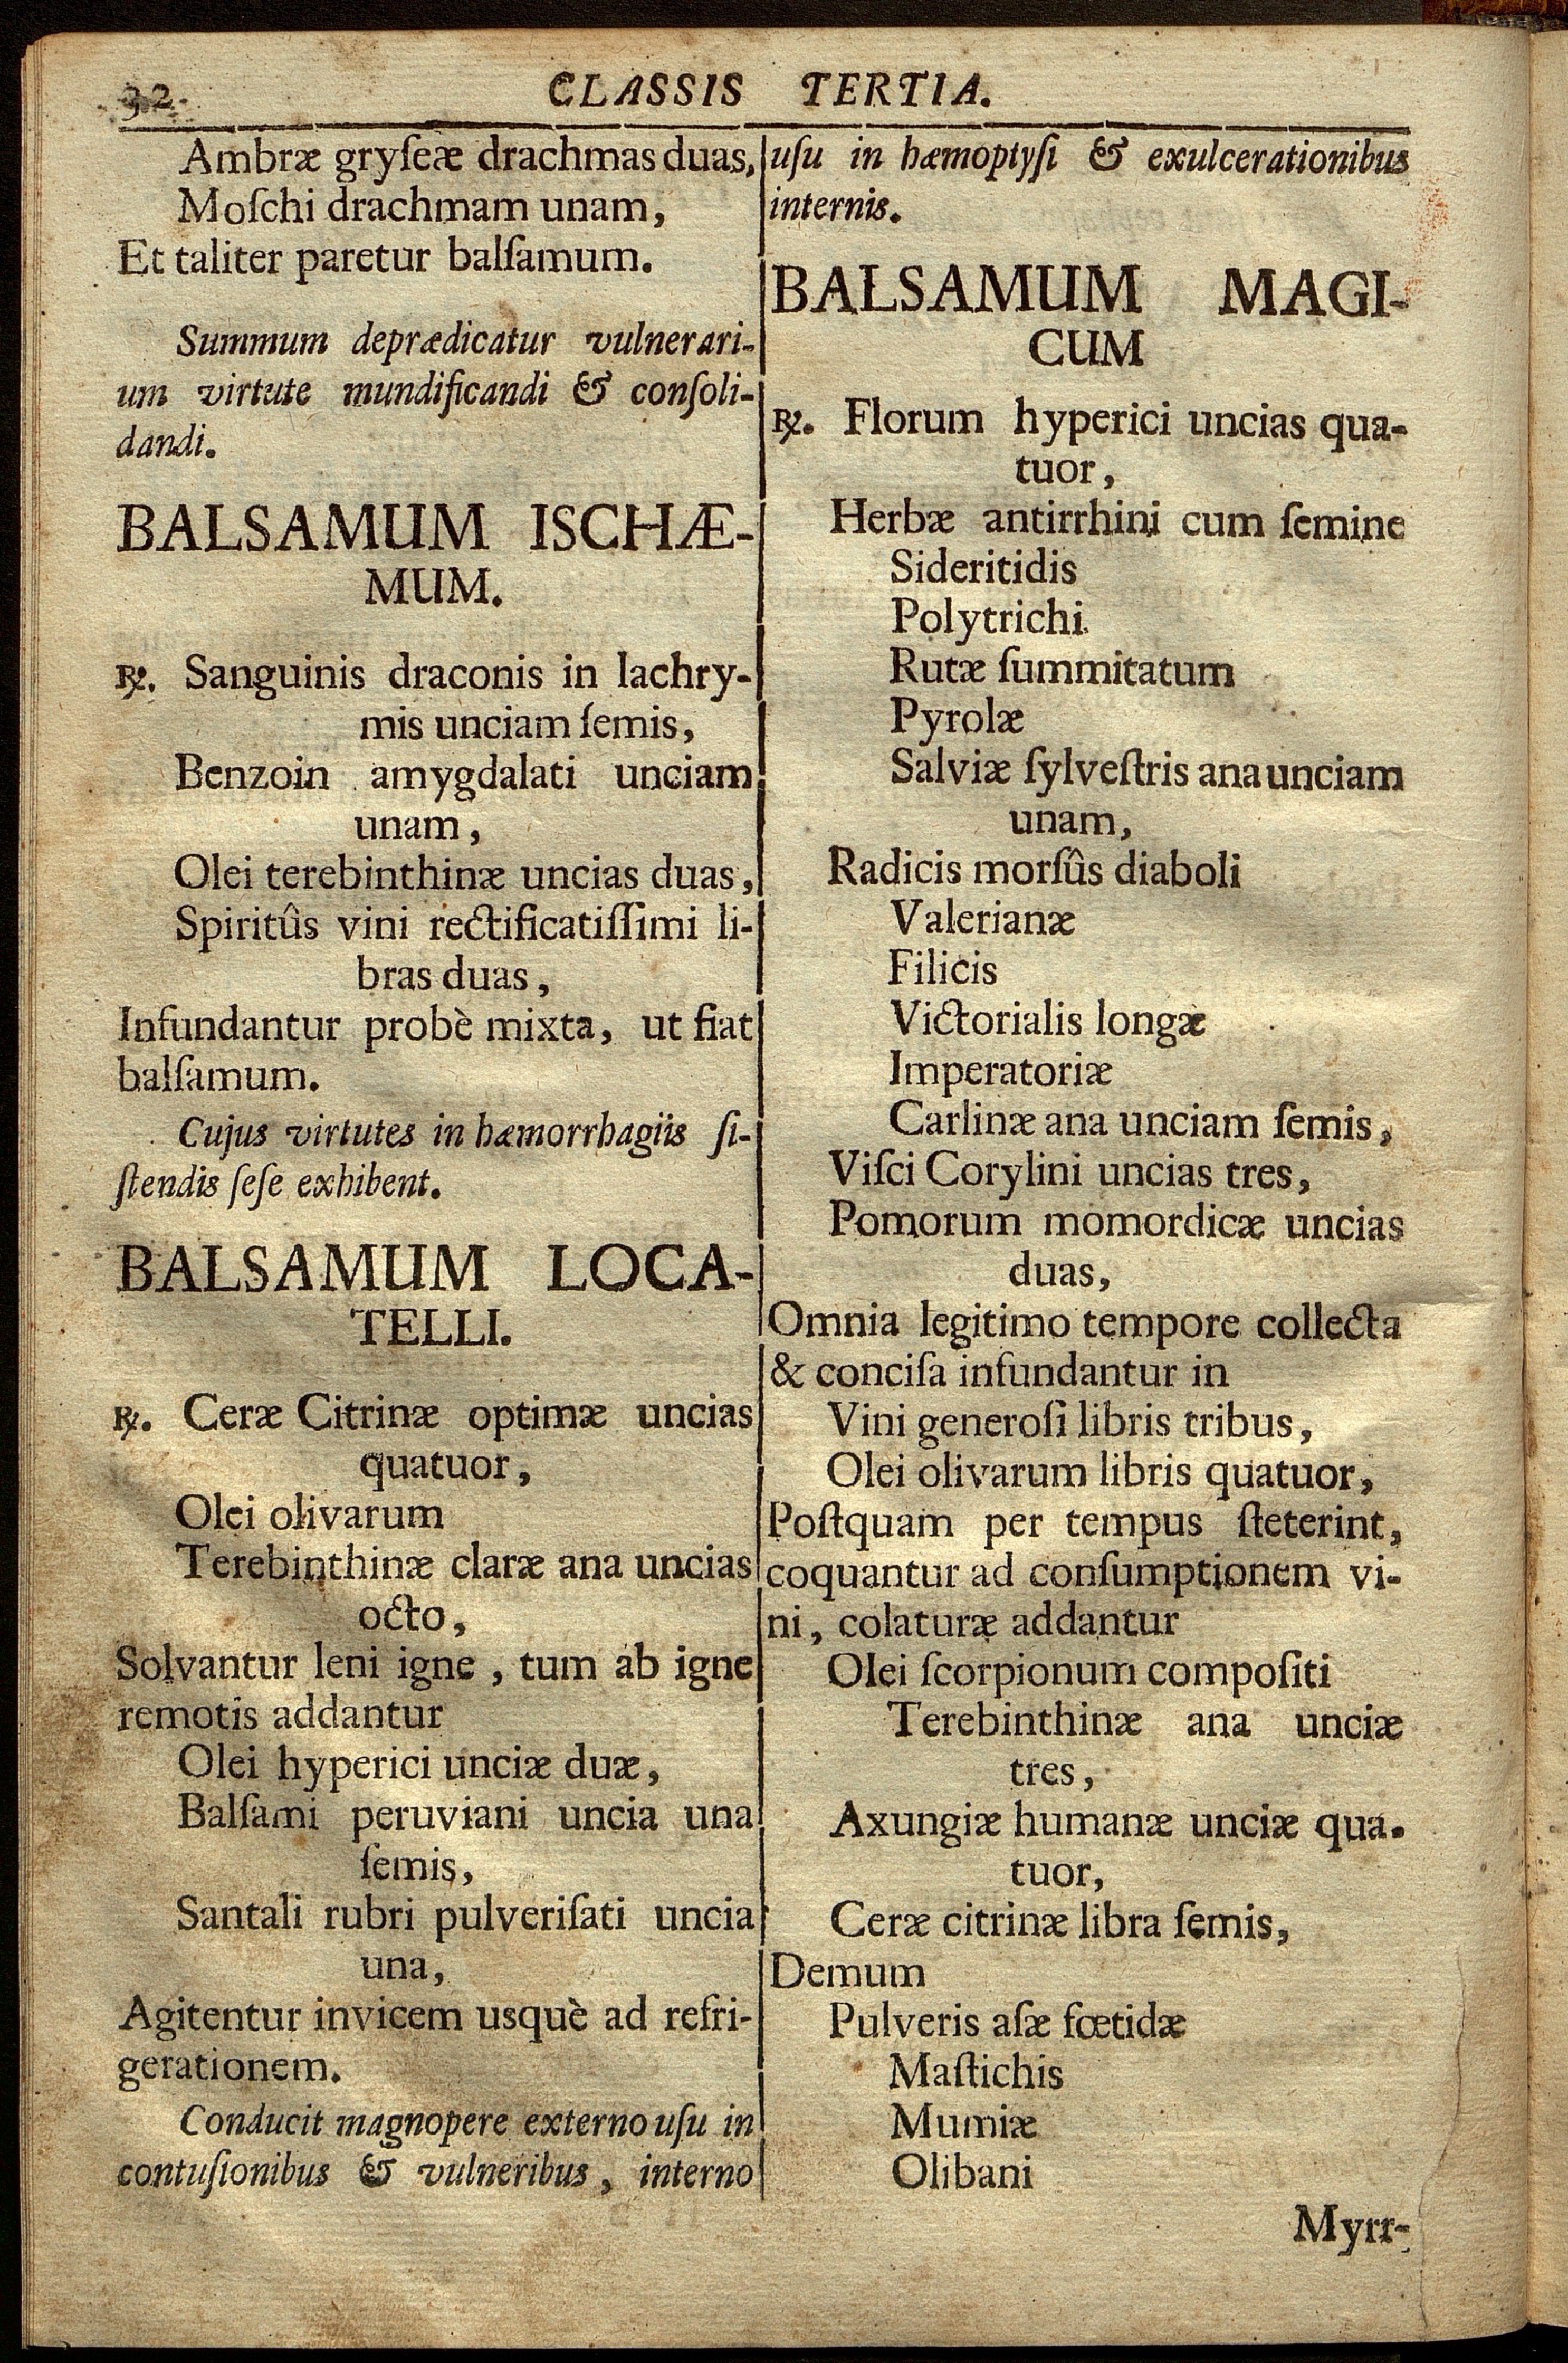 32
CLASSIS TERTIA.
Ambræ gryſeæ drachmas duas,
Moſchi drachmam unam,
Et taliter paretur balſamum.
Summum deprædicatur vulnerari-
um virtute mundificandi & conſoli-
dandi.
BALSAMUM ISCHÆ-
MUM.
℞. Sanguinis draconis in lachry-
mis unciam ſemis,
Benzoin amygdalati unciam
unam,
Olei terebinthinæ uncias duas,
Spiritûs vini rectificatiſſimi li-
bras duas,
Infundantur probè mixta, ut fiat
balſamum.
Cujus virtutes in hæmorrhagiis ſi-
ſtendis ſeſe exhibent.
BALSAMUM LOCA-
TELLI.
℞. Ceræ Citrinæ optimæ uncias
quatuor,
Olei olivarum
Terebinthinæ claræ ana uncias
octo,
Solvantur leni igne, tum ab igne
remotis addantur
Olei hyperici unciæ duæ,
Balſami peruviani uncia una
ſemis,
Santali rubri pulveriſati uncia
una,
Agitentur invicem usquè ad refri-
gerationem.
Conducit magnopere externo uſu in
contuſionibus & vulneribus, interno
uſu in hæmoptyſi & exulcerationibus
internis.
BALSAMUM MAGI-
CUM
℞. Florum hyperici uncias qua-
tuor,
Herbæ antirrhini cum ſemine
Sideritidis
Polytrichi
Rutæ ſummitatum
Pyrolæ
Salviæ ſylveſtris ana unciam
unam,
Radicis morſûs diaboli
Valerianæ
Filicis
Victorialis longæ
Imperatoriæ
Carlinæ ana unciam ſemis,
Viſci Corylini uncias tres,
Pomorum momordicæ uncias
duas,
Omnia legitimo tempore collecta
& conciſa infundantur in
Vini generoſi libris tribus,
Olei olivarum libris quatuor,
Poſtquam per tempus ſteterint,
coquantur ad conſumptionem vi-
ni, colaturæ addantur
Olei ſcorpionum compoſiti
Terebinthinæ ana unciæ
tres,
Axungiæ humanæ unciæ qua-
tuor,
Ceræ citrinæ libra ſemis,
Demum
Pulveris aſæ fœtidæ
Maſtichis
Mumiæ
Olibani
Myrr-